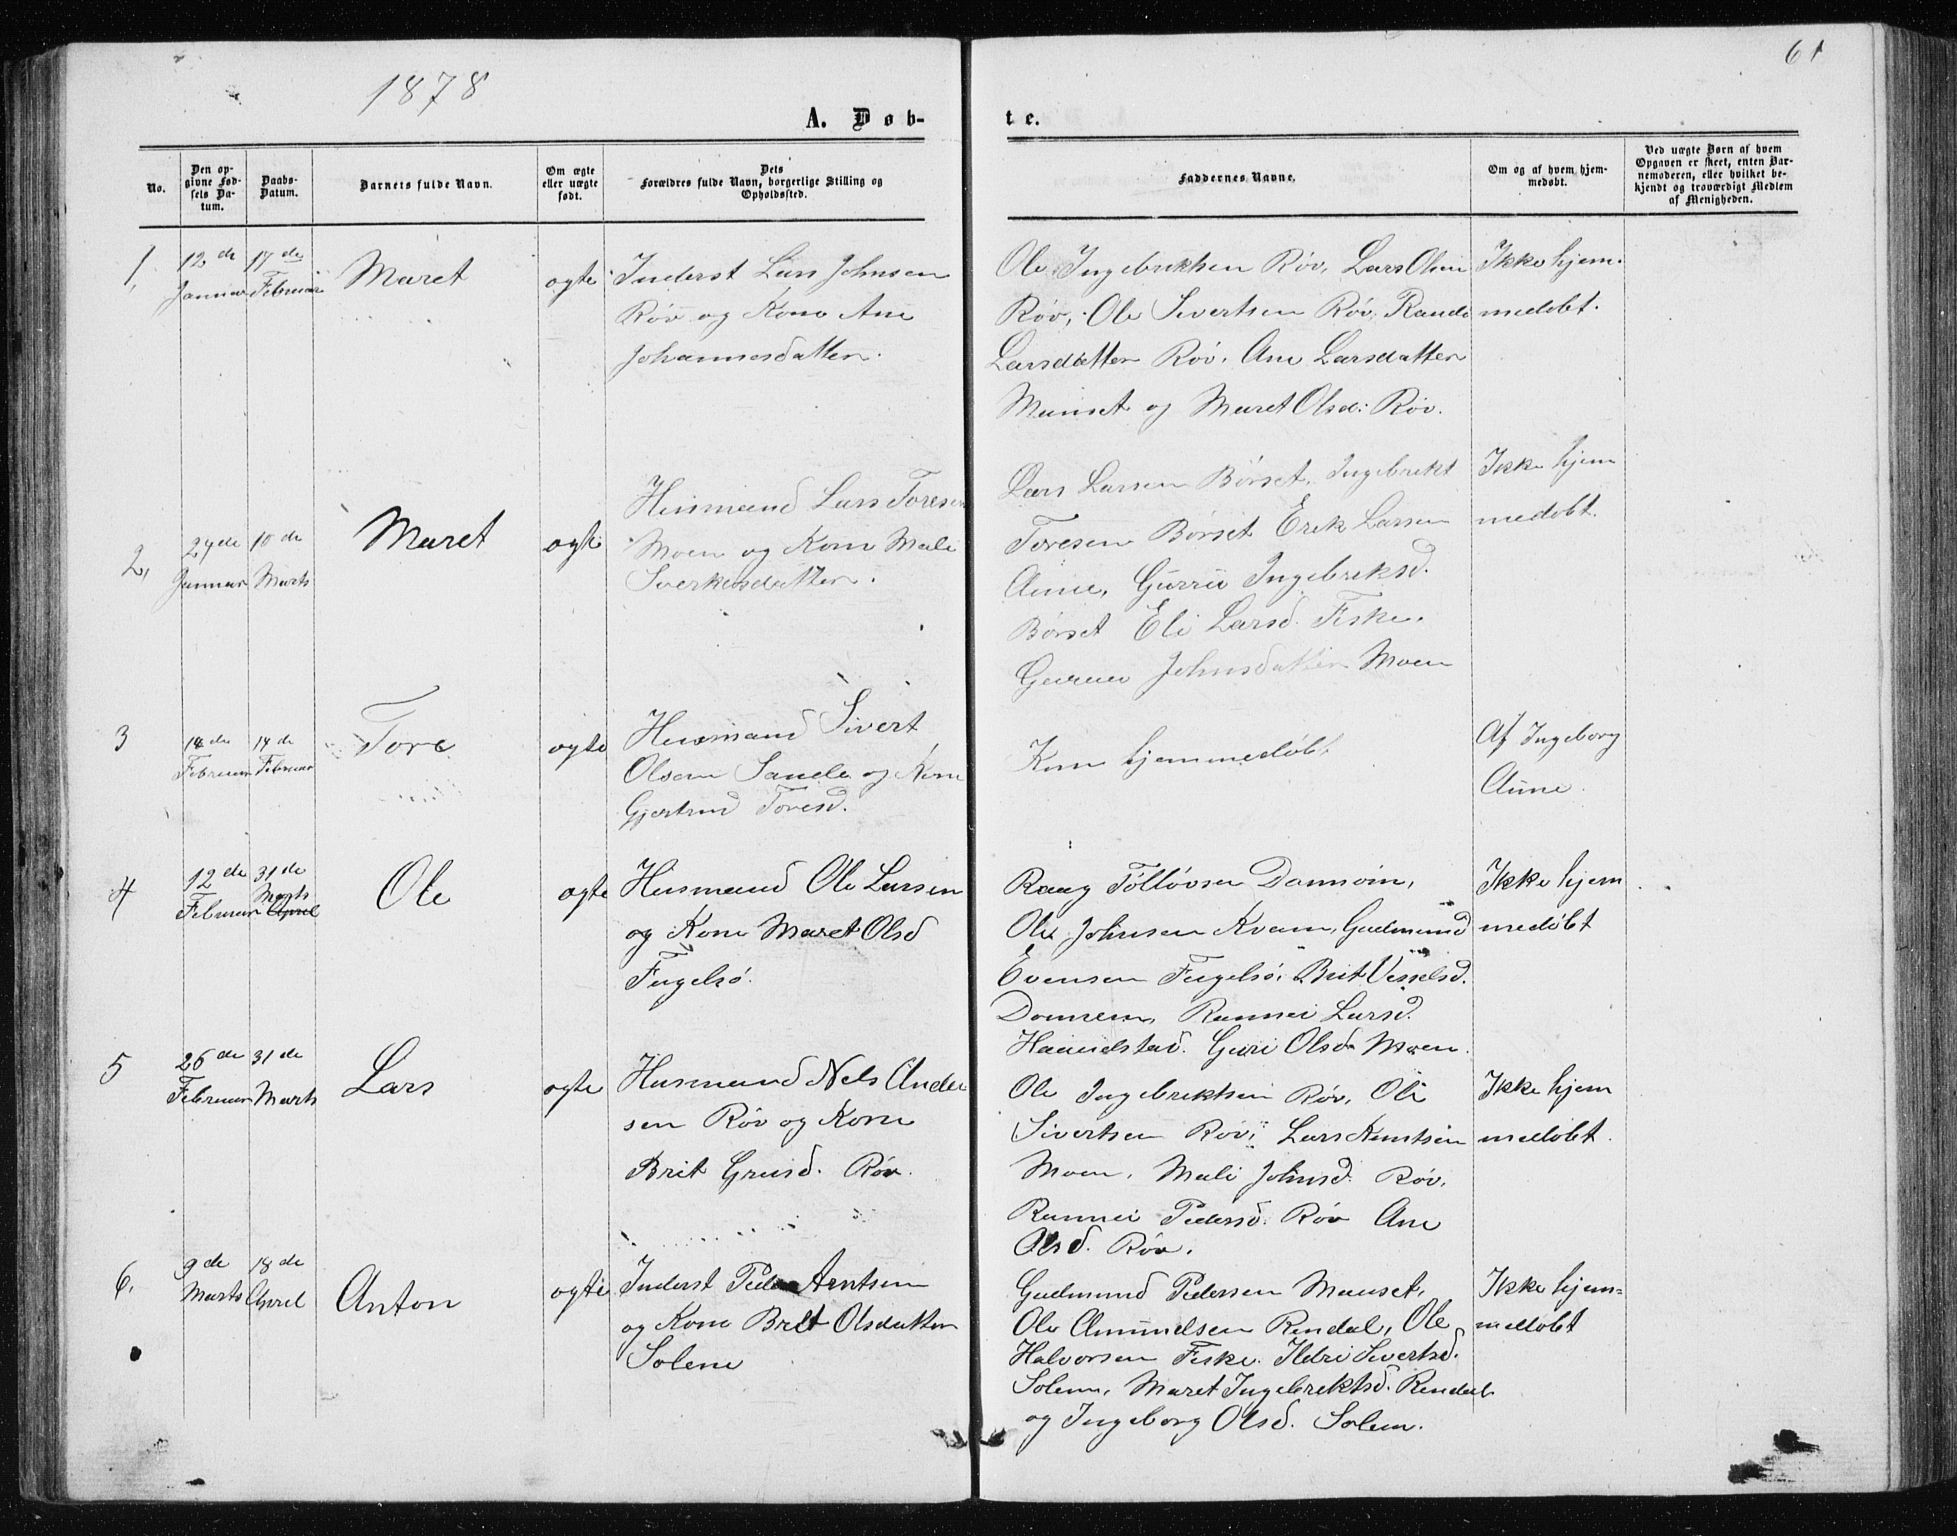 1878
61
A. Døb-
te.
No.
Den op-
givne Fød-
sels Da-
tum.
Daabs-
Datum.
Barnets fulde Navn.
Om ægte
eller uægte
født.
Dets
Forældres fulde Navn, borgerlige Stilling og
Opholdssted.
Faddernes Navne.
Om og af hvem hjem-
medøbt.
Ved uægte Børn af hvem
Opgaven er skeet, enten Bar-
nemoderen, eller hvilket be-
kjendt og troværdigt Medlem
af Menigheden.
1,
12de
Januar
17de
Februar
Maret
ogte
Inderst Lars Johnsen
Röv og Kone Ane
Johannesdatter.
Ole Ingebrektsen Röv, Lars Olsen
Röv, Ole Sivertsen Röv, Rande
Larsdatter Röv, Ane Larsdatter
Manset og Maret Olsd: Röv.
Ikke hjem-
medøbt.
2,
24de
Januar
10de
Marts
Maret
ogte
Husmand Lars Toresen
Moen og Kone Mali
Sverkesdatter.
Lars Larsen Børset, Ingebrikt
Toresen Børset Erik Larsen
Aune, Gurru Ingebreksd.
Børset Eli Larsd. Fiske,
Johnsdatter Moen
Ikke hjem
medøbt.
3
14de
Februar
14de
Februar
Tore
ogte
Husmand Sivert
Olsen Sande og Kone
Gjertrud Toresd.
Kun hjemmedøbt
Af Ingeborg
Aune.
4
12de
Februar
31de
Marts
April
Ole
ogte
Husmand Ole Larsen
og Kone Maret Olsd
Fugelsø.
Ole Johnsen Kvam, Gudmund
Evensen Fugelsø, Brit
Rannei Larsd.
Haandstad. Guri Olsd Moen.
Ikke hjem
medøbt
5
26de
Februar
31de
Marts
Lars
ogte
Husmand Nels Ander
sen Röv og Kone
Brit Röv.
Ole Ingebrektsen Röv, Ole
Sivertsen Röv, Lars Knutsen
Moen, Mali Johnsd. Röv,
Rannei Pedersd. Röv Ane
Olsd. Röv.
Ikke hjem
medøbt.
6,
9de
Marts
18de
April
Anton
ogte
Inderst Peder Arntsen
og Kone Brit Olsdatter
Solem
Gudmund Pedersen Manset,
Ole Amundsen Rendal, Ole
Halvorsen Fiske. Ildri Sivertsd.
Solem, Maret Ingebrektsd. Rendal
og Ingeborg Olsd. Solem.
Ikke hjem=
medøbt